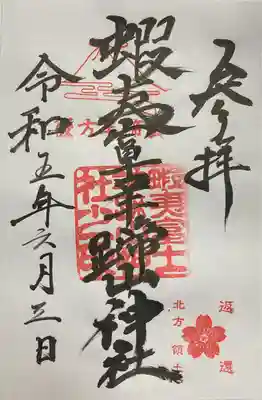 奉拝
蝦夷富士羊蹄山神社
令和五年六月三日
蝦夷富士
返還
北方領土